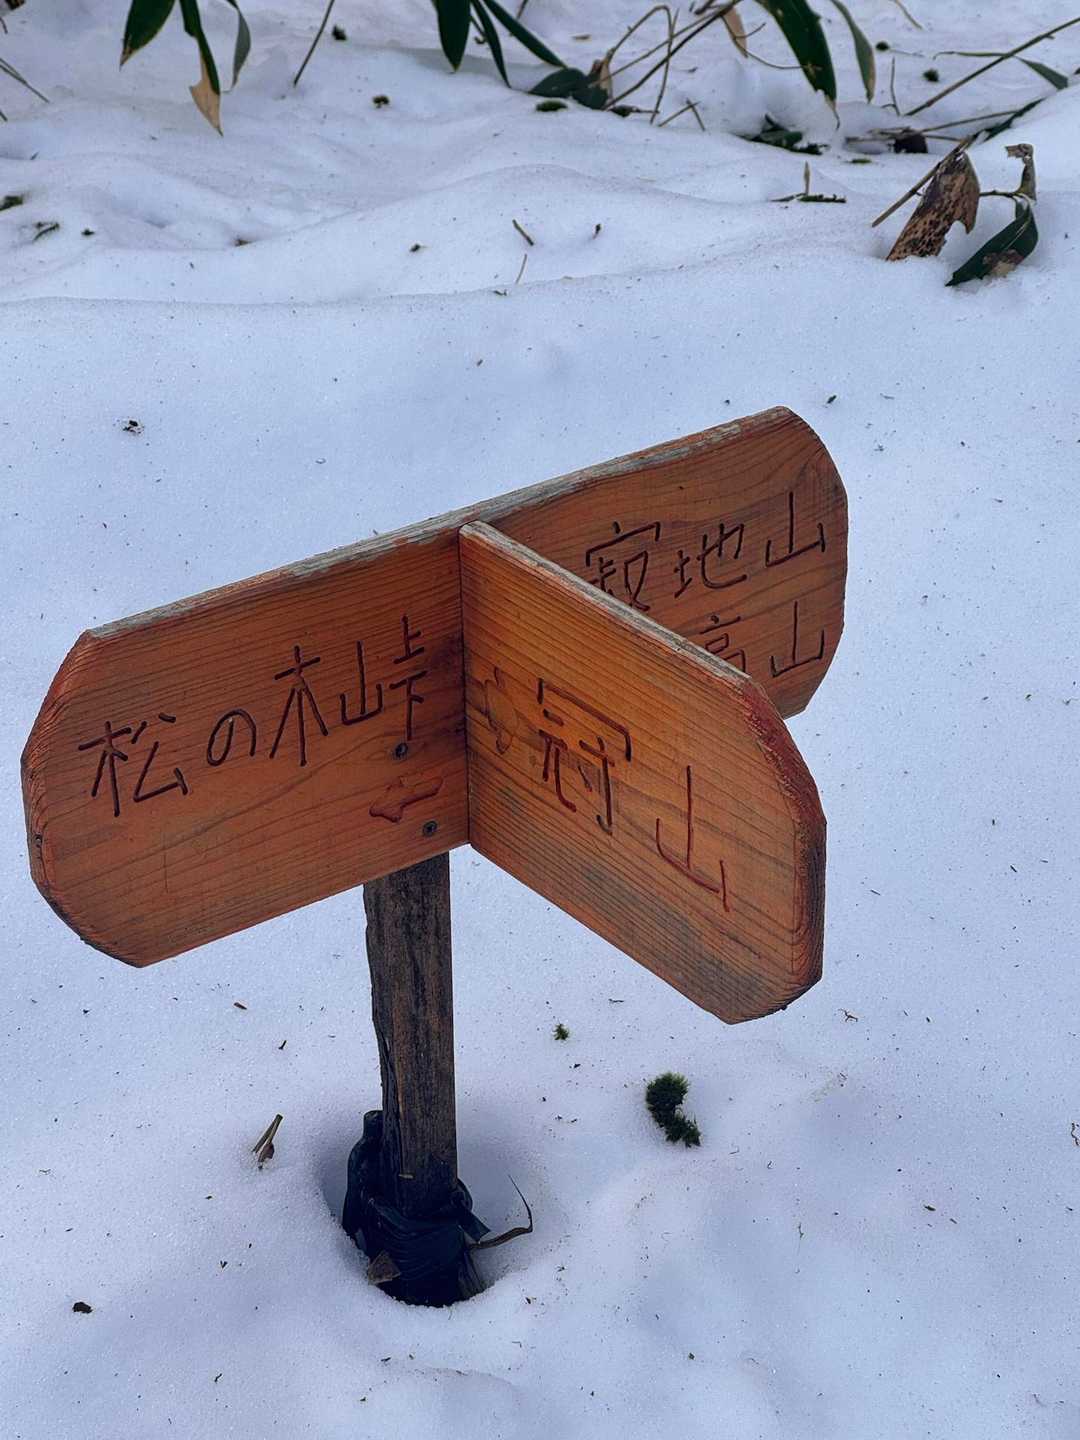 松の木峠
←
冠山
寂地山
高山